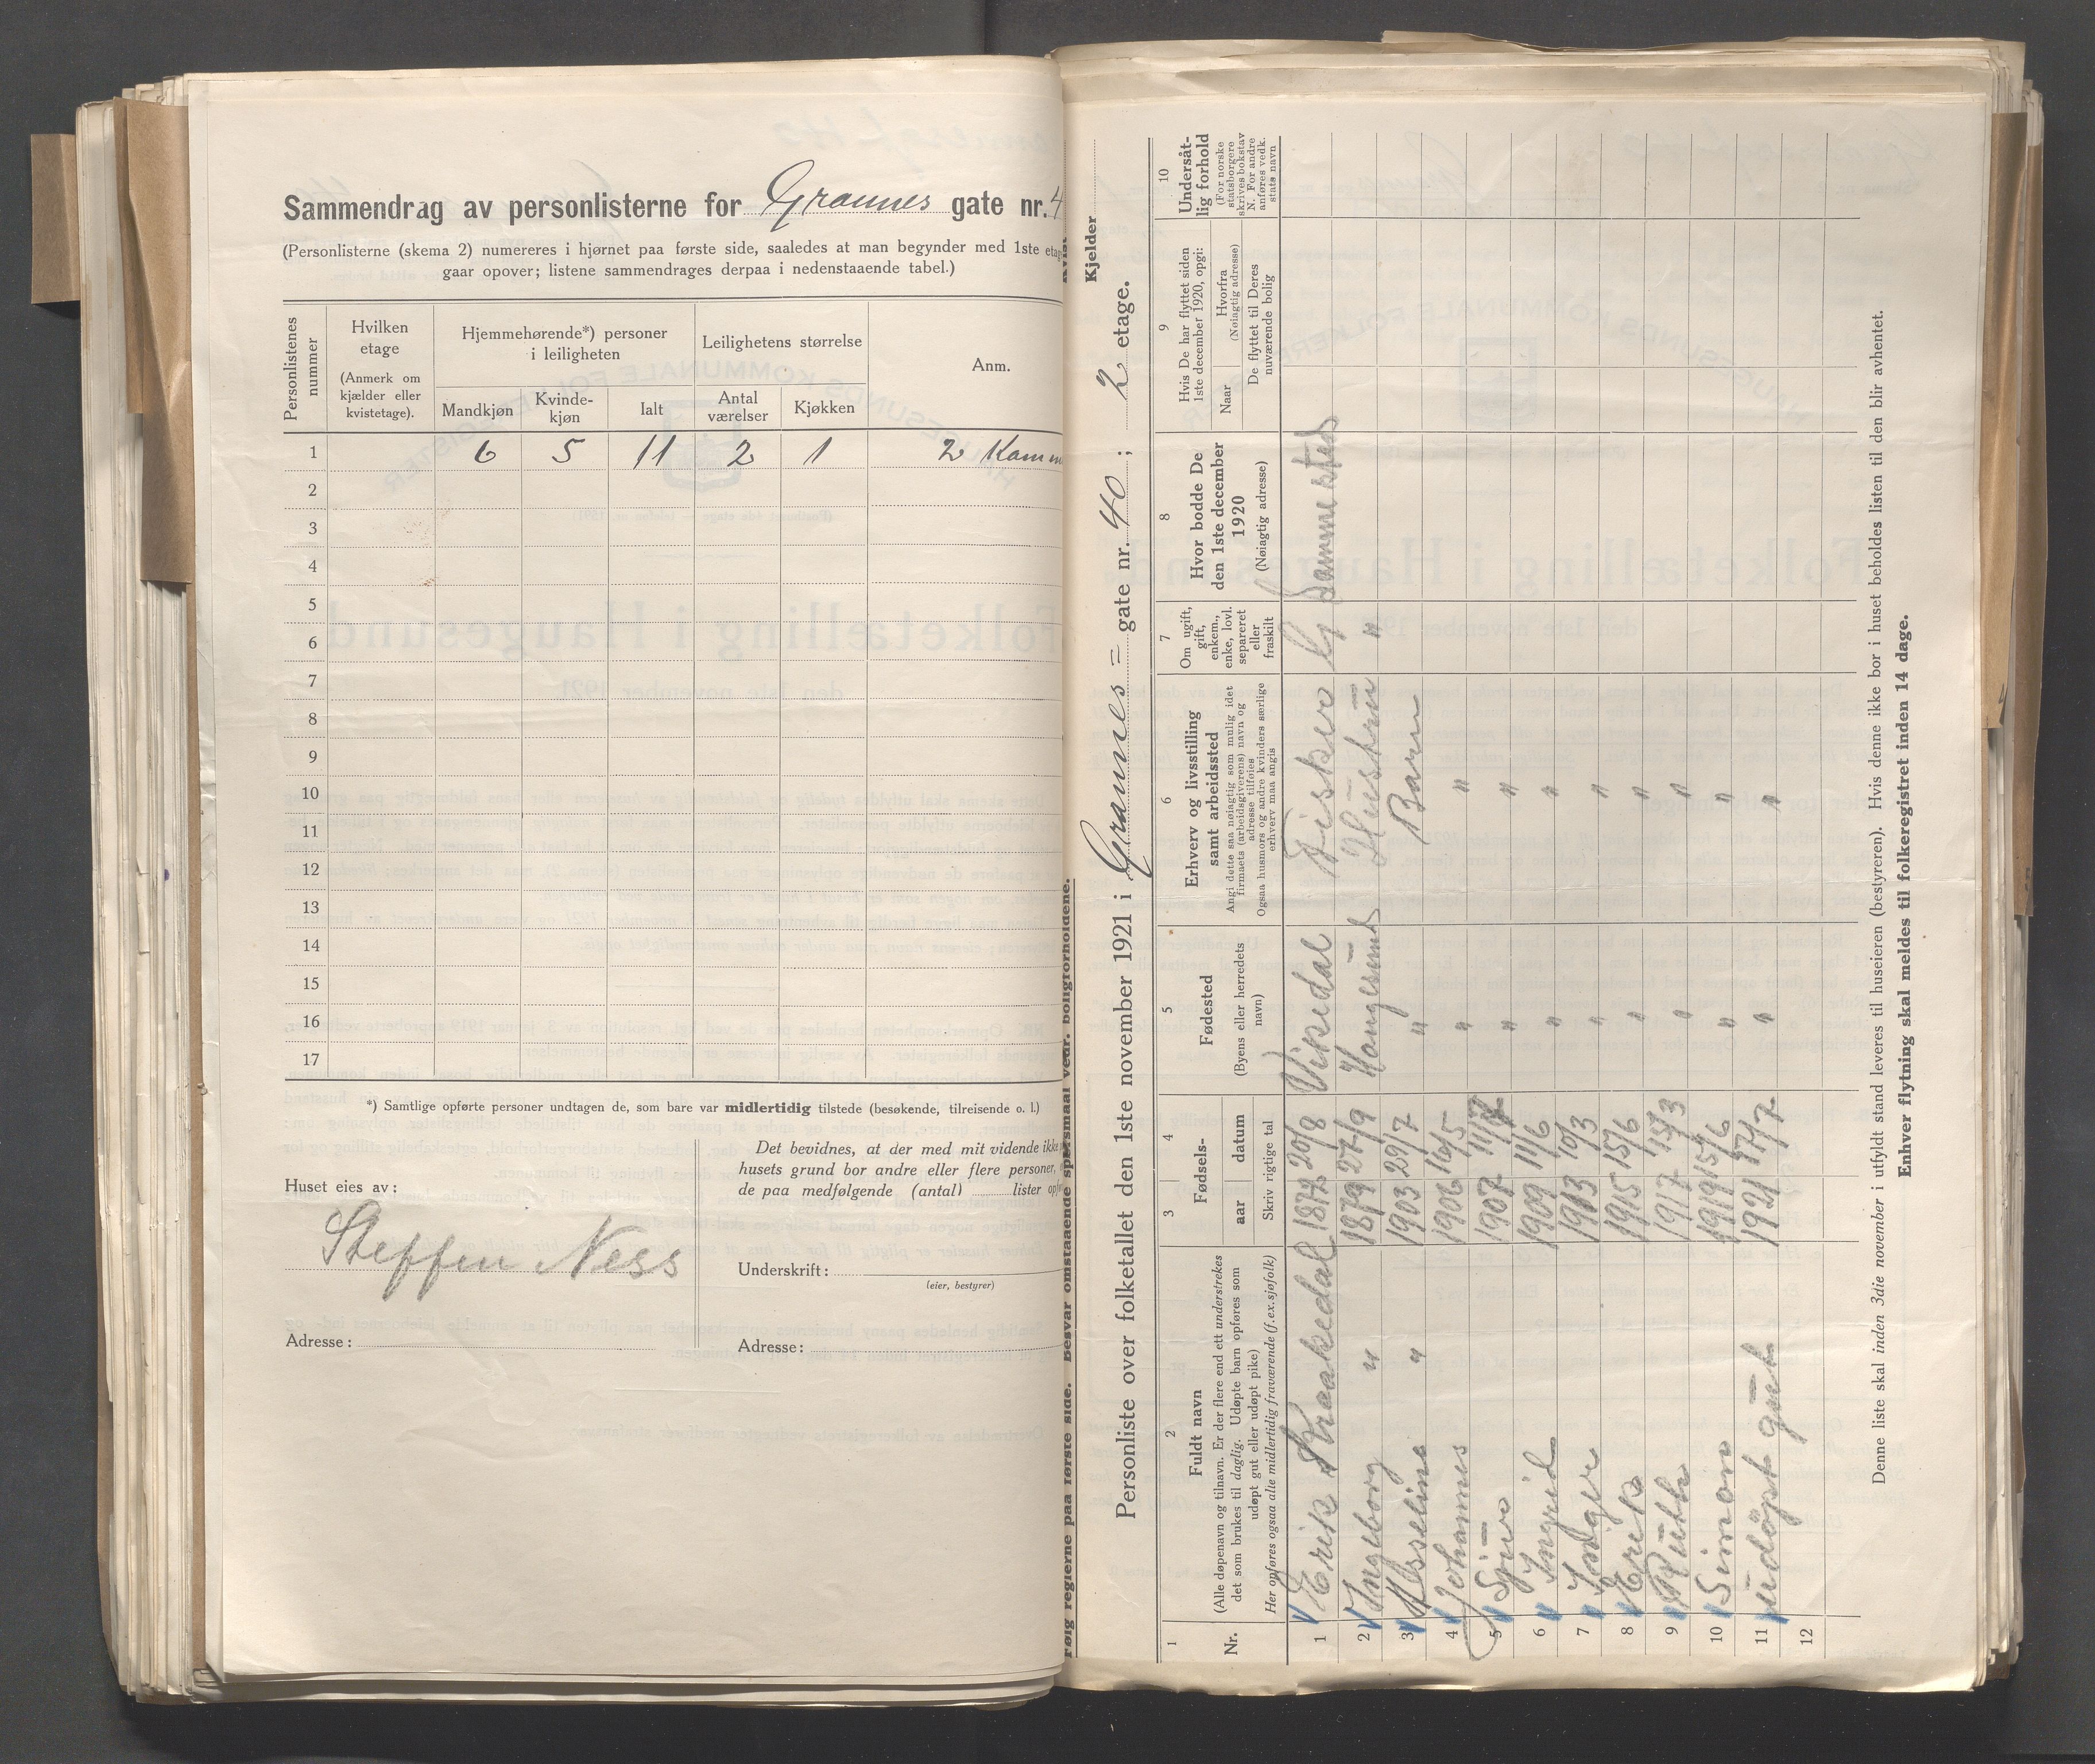 Sammendrag av personlisterne for Grannes gate nr. 4
(Personlisterne (skema 2) numereres i hjørnet paa første side, saaledes at man begynder med 1ste etag
gaar opover; listene sammendrages derpaa i nedenstaaende tabel.)
Personlistenes nummer
Hvilken etage
(Anmerk om kjælder eller kvistetage).
Hjemmehørende*) personer i leiligheten
Mandkjøn
Kvinde-kjøn
Ialt
Leilighetens størrelse
Antal værelser
Kjøkken
Anm.
1 6 5 11 2 1 2 Kamm
2
3
4
5
6
7
8
9
10
11
12
13
14
15
16
17
*) Samtlige opførte personer undtagen de, som bare var midlertidig tilstede (besøkende, tilreisende o. l.)
Huset eies av:
Steffen Ness
Adresse:
Det bevidnes, at der med mit vidende ikke
husets grund bor andre eller flere personer,
de paa medfølgende (antal) lister opf
Underskrift:
(eier, bestyrer)
Adresse:
følg reglerne paa første side. Besvar omstaaende spørsmaal vedr. boligforholdene.
Kvist
Kjelder
Personliste over folketallet den 1ste november 1921 i Grannes = gate nr. 40 ; 2 etage.
1
Nr.
2
Fuldt navn
(Alle døpenavn og tilnavn. Er der flere end ett understrekes
det som brukes til daglig. Udøpte barn opføres som
udøpt gut eller udøpt pike)
Her opføres ogsaa alle midlertidig fraværende (f.ex. sjøfolk)
3
4
Fødsels-
aar
datum
Skriv rigtige tal
5
Fødested
(Byens eller herredets navn)
6
Erhverv og livsstilling
samt arbeidssted
Angi dette saa nøiagtig som mulig idet
firmaets (arbeidsgiverens) navn og
adresse tilføies
Ogsaa husmors og andre kvinders særlige
erhverv maa angis
7
Om ugift,
gift,
enkem.,
enke, lovl.
separeret
eller
fraskilt
8
Hvor bodde De
den 1ste december
1920
(Nøiagtig adresse)
9
Hvis De har flyttet siden
1ste december 1920, opgi:
Naar
Hvorfra
(Nøiagtig adresse)
De flyttet til Deres
nuværende bolig
10
Undersåt-
lig forhold
(For norske
statsborgere
skrives bokstav
N. For andre
anføres vedk.
stats navn
1 Erik Kraakedal 1872 20/8 Vikedal Fisker G Sammesteds
2 Ingeborg " 1879 27/9 Haugesund Hustru "
3 Asseline " 1903 29/7 " Barn
4 Johannes 1906 16/5 " "
5 1907 " "
6 Ingrid 1909 11/6 " "
7 Inger 1913 10/3 " "
8 Erik 1915 15/6 " "
9 Ruth 1917 15/3 " "
10 Simon 1919 15/6 " "
11 udöpt gut 1921 17/7 " "
12
Denne liste skal inden 3die november i utfyldt stand leveres til huseieren (bestyreren). Hvis denne ikke bor i huset beholdes listen til den blir avhentet.
Enhver flytning skal meldes til folkeregistret inden 14 dage.